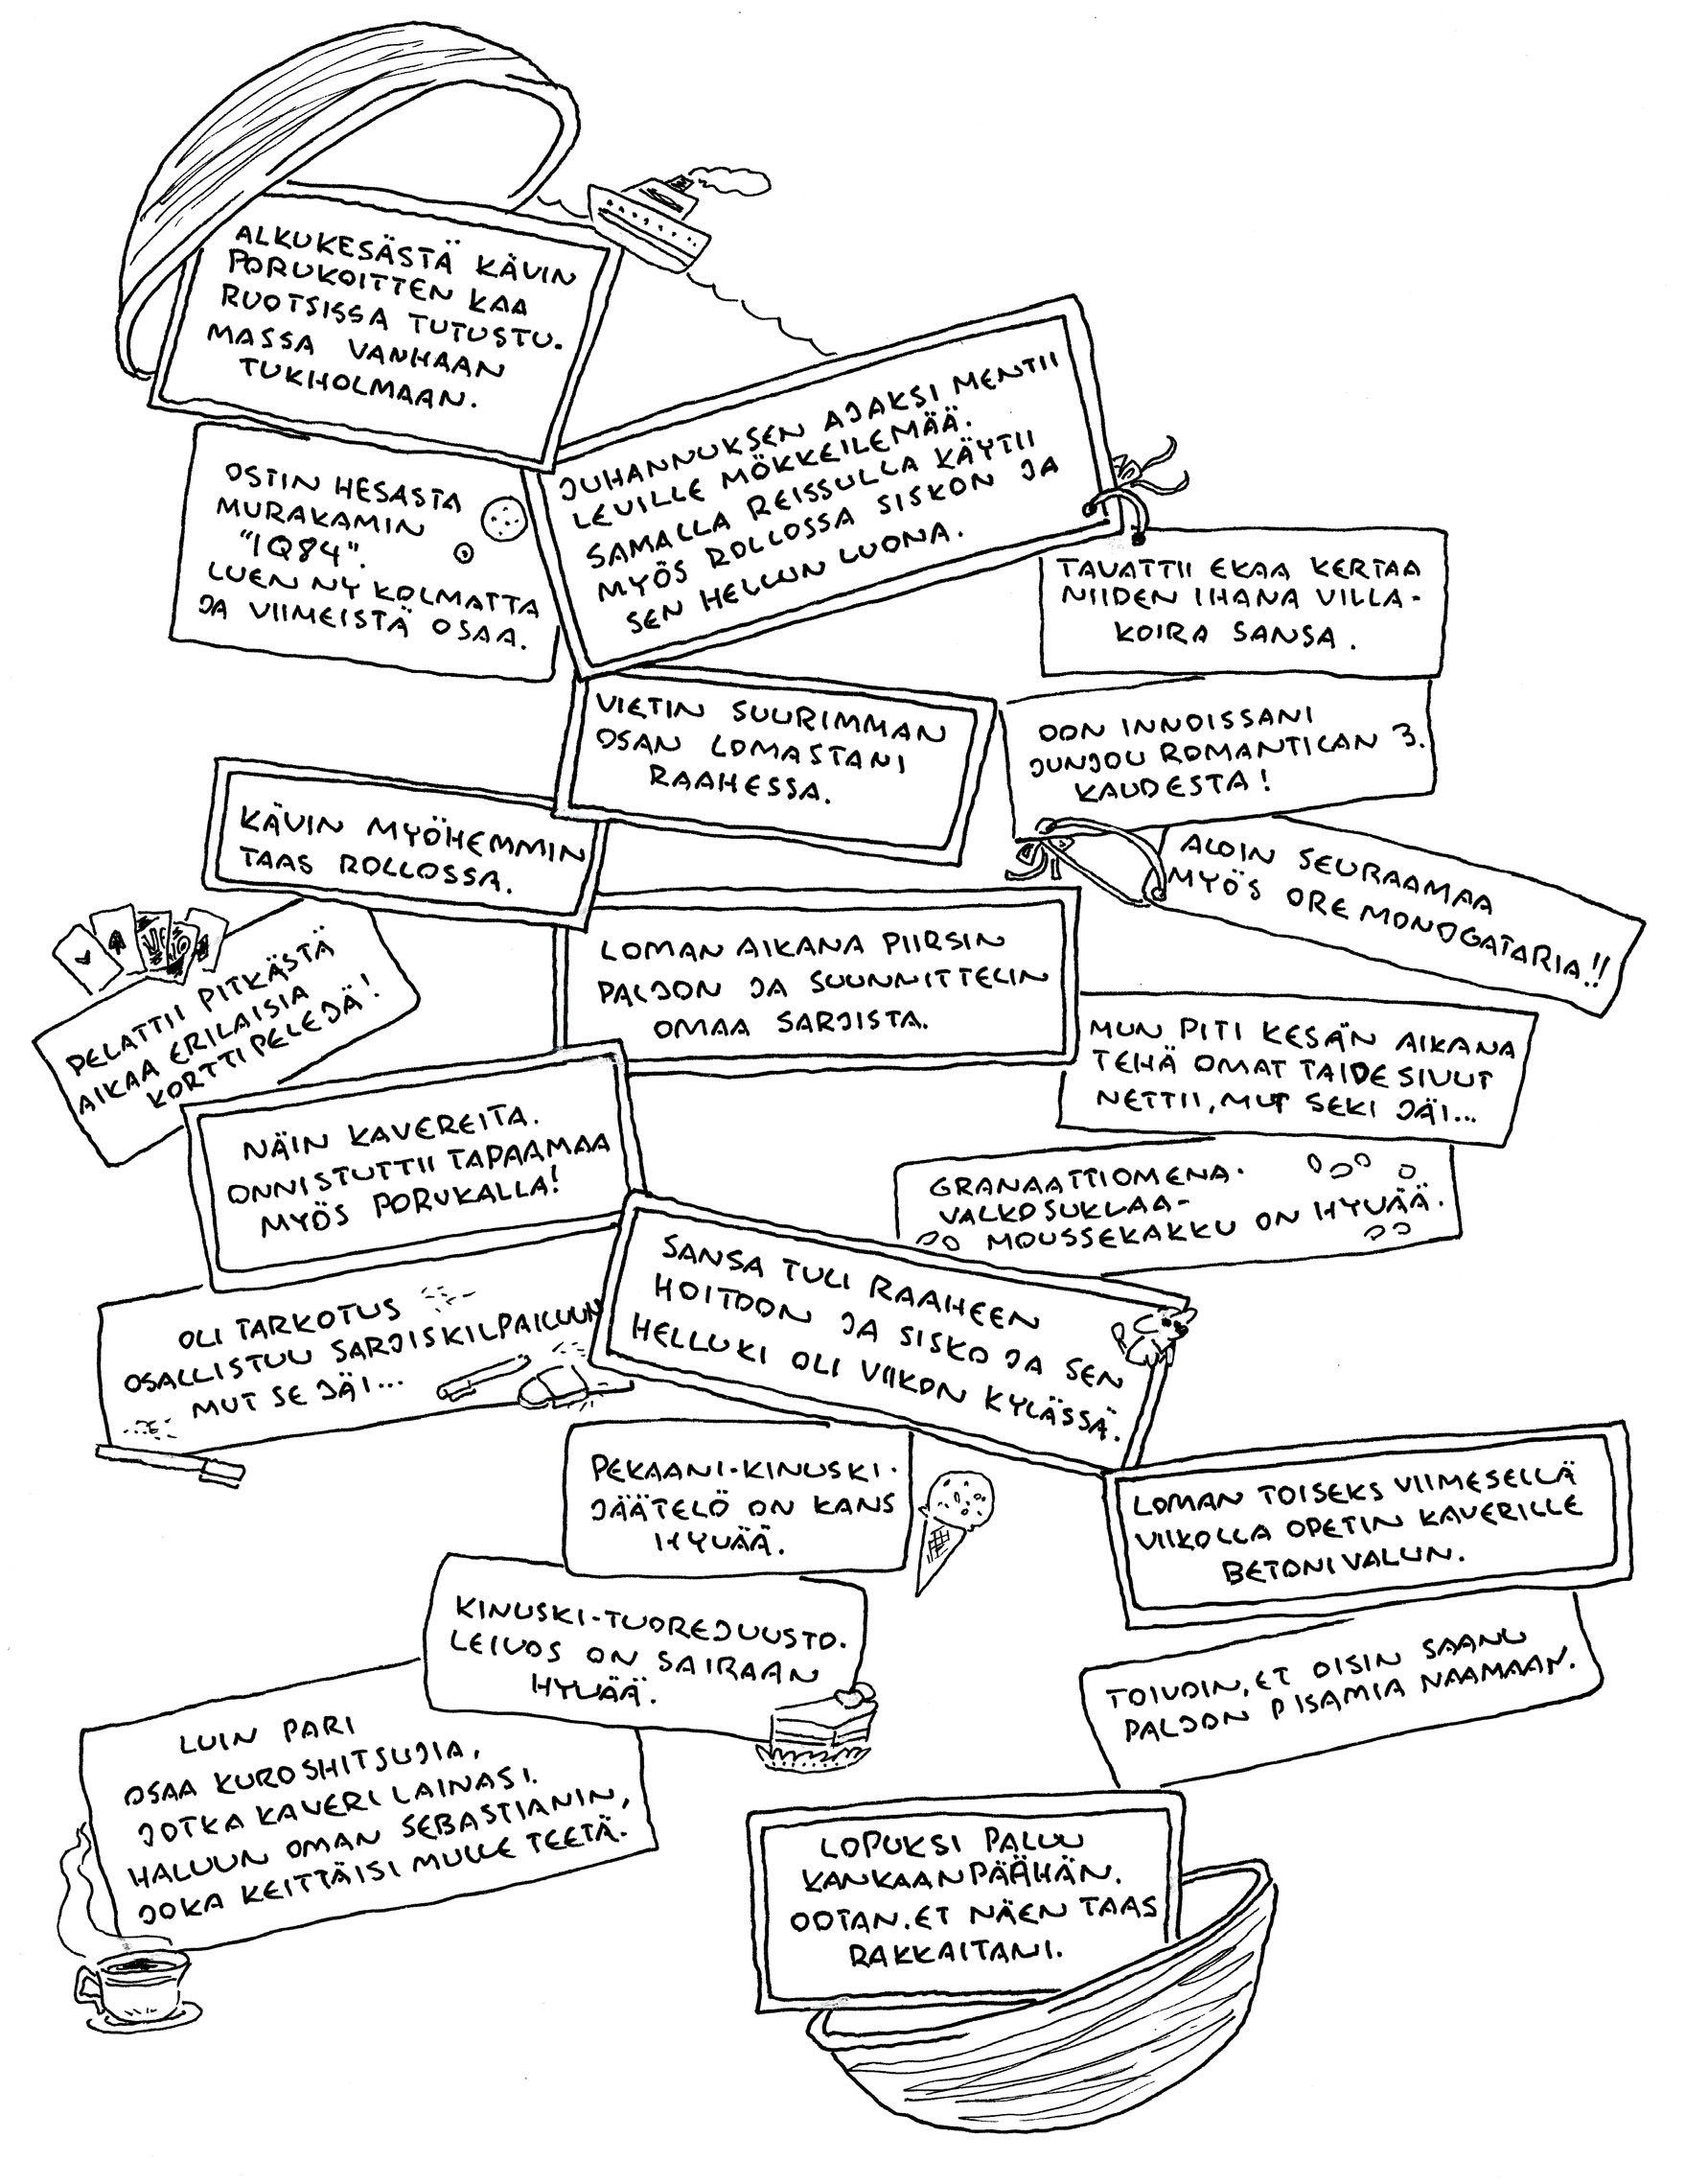 ALKUKESÄSTÄ KÄVIN
PORUKOITTEN KAA
RUOTSISSA TUTUSTU-
MASSA VANHAAN
TUKHOLMAAN.
JUHANNUKSEN AJAKSI MENTII
LEVILLE MÖKKEILEMÄÄ.
SAMALLA REISSULLA KÄYTII
MYÖS ROLLOSSA SISKON JA
SEN HELLUN LUONA.
OSTIN HESASTA
MURAKAMIN
"1Q84".
LUEN NY KOLMATTA
JA VIIMEISTÄ OSAA.
TAVATTII EKAA KERTAA
NIIDEN IHANA VILLA-
KOIRA SANSA.
VIETIN SUURIMMAN
OSAN LOMASTANI
RAAHESSA.
OON INNOISSANI
JUNJOU ROMANTICAN 3.
KAUDESTA!
KÄVIN MYÖHEMMIN
TAAS ROLLOSSA.
ALOIN SEURAAMAA
MYÖS ORE MONOGATARIA!!
PELATTII PITKÄSTÄ
AIKAA ERILAISIA
KORTTIPELEJÄ!
LOMAN AIKANA PIIRSIN
PALJON JA SUUNNITTELIN
OMAA SARJISTA.
MUN PITI KESÄN AIKANA
TEHÄ OMAT TAIDESIVUT
NETTII, MUT SEKI JÄI...
NÄIN KAVEREITA.
ONNISTUTTII TAPAAMAA
MYÖS PORUKALLA!
GRANAATTIOMENA-
VALKOSUKLAA-
MOUSSEKAKKU ON HYVÄÄ.
SANSA TULI RAAHEEN
HOITOON JA SISKO JA SEN
HELLUKI OLI VIIKON KYLÄSSÄ.
OLI TARKOTUS
OSALLISTUU SARJISKILPAILUUN
MUT SE JÄI...
PEKAANI-KINUSKI-
JÄÄTELÖ ON KANS
HYVÄÄ.
LOMAN TOISEKS VIIMESELLÄ
VIIKOLLA OPETIN KAVERILLE
BETONIVALUN.
KINUSKI-TUOREJUUSTO-
LEIVOS ON SAIRAAN
HYVÄÄ.
TOIVOIN, ET OISIN SAANU
PALJON PISAMIA NAAMAAN.
LUIN PARI
OSAA KUROSHITSUJIA,
JOTKA KAVERI LAINASI.
HALUUN OMAN SEBASTIANIN,
JOKA KEITTÄISI MULLE TEETÄ.
LOPUKSI PALUU
KANKAANPÄÄHÄN.
OOTAN, ET NÄEN TAAS
RAKKAITANI.